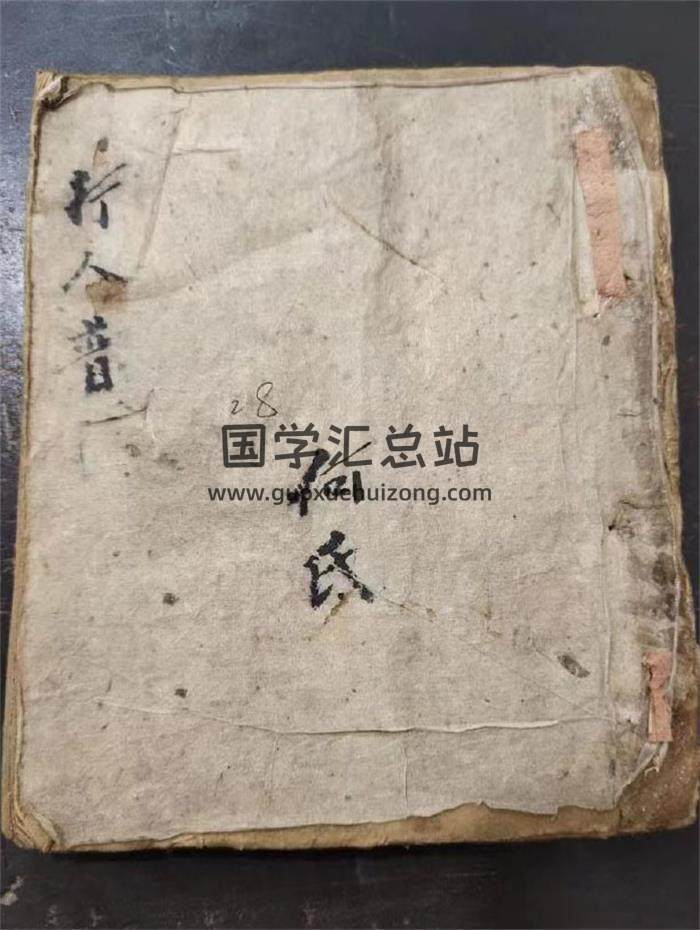 行人普
28
国学汇总站
www.guoxuehuizong.com
何氏